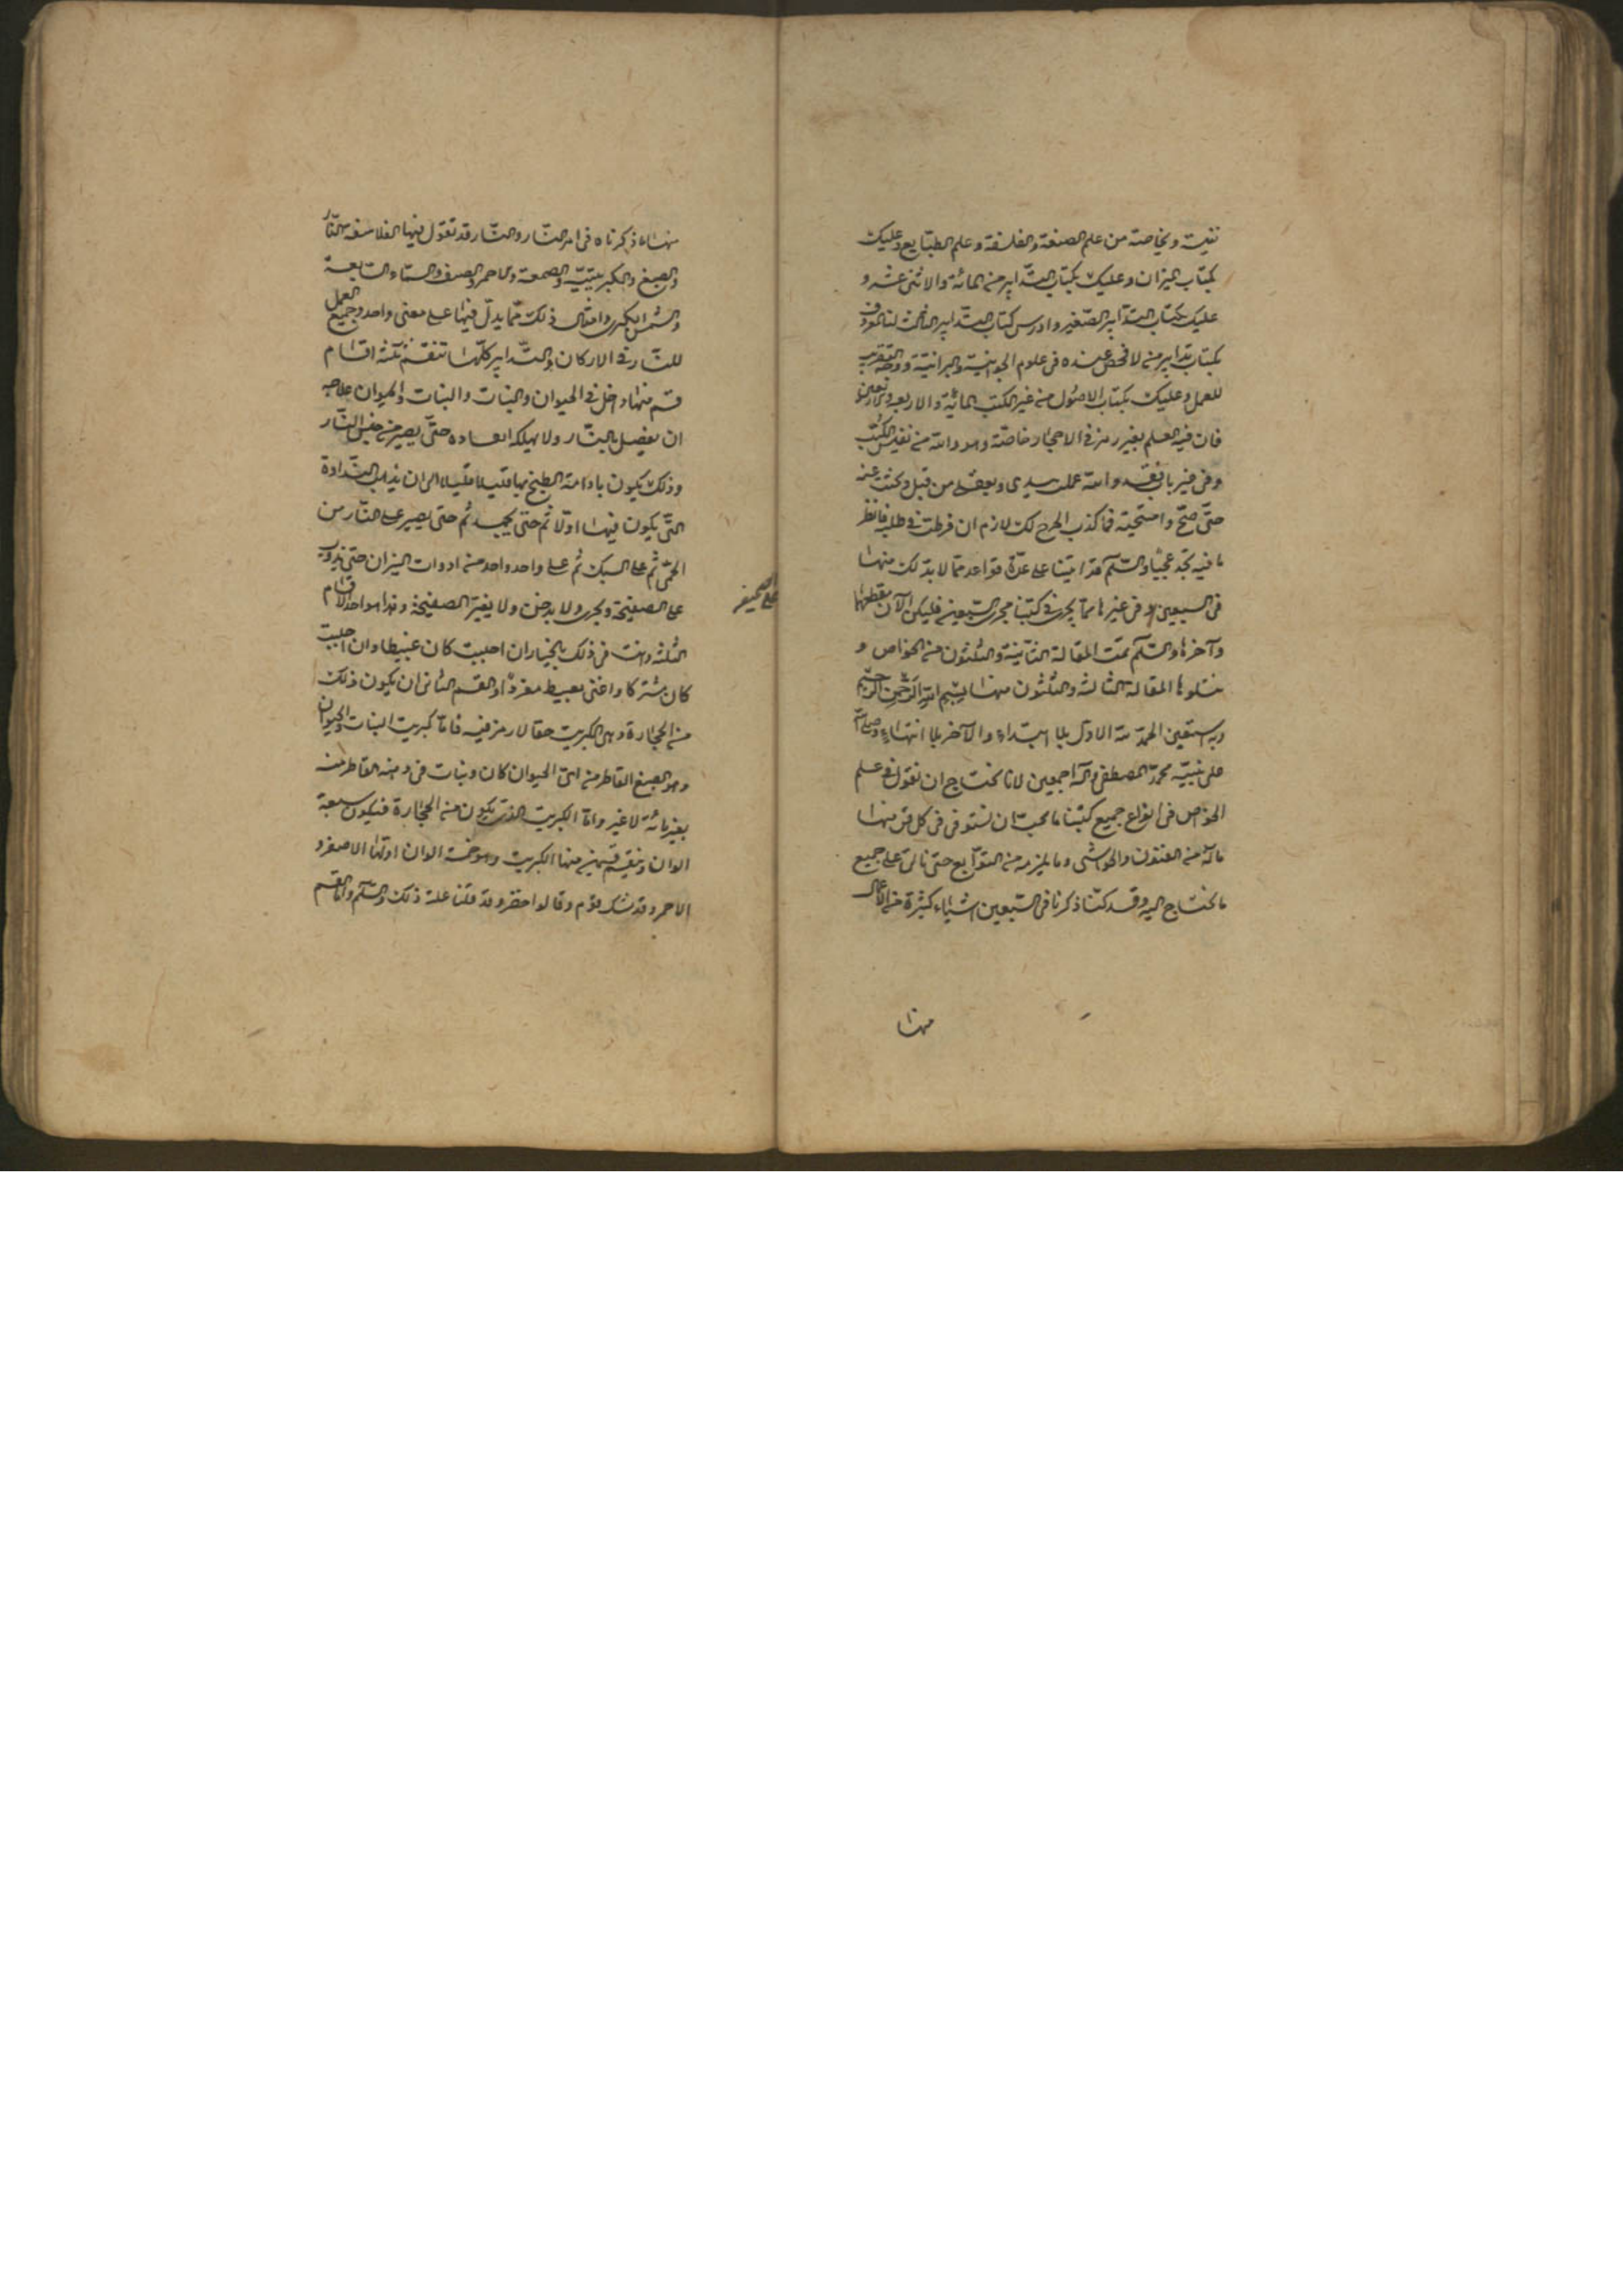 نفيسة وبخاصة من علم الصنعة والفلسفة وعلم الطبايع وعليك
بكتاب الميزان وعليك بكتاب التدابير من المائة والاثنى عشر و
عليك بكتاب التدابير الصغير وادرس كتاب التدابير الثالث لنا المعروف
بكتاب تدابير من لا فحص عنده فى علوم الجوانية والبرانية ووجه التقريب
للعمل وعليك بكتاب الاصول من غير الكتب المائة والاربعة
فان فيه العلم بغير رمز فى الاحجار خاصّة وهو والله من نفيس الكتب
وفى والله عمله سيدى من قبل وبحثت عنه
حتّى صحّ وامتحنته فما كذب لك لازم ان فرطت فى طلبه فانظر
ما فيه تجد عجبًا والسّلم قد اتينا على عدّة قواعد ممّا لا بدّ لك منها
فى السبعين وفى غيرها ممّا يجرى فى كتبنا مجرى السّبعين فليكن الآن مقطعها
وآخرها والسّلم تمّت المقالة الثانية والثلثون من الخواص و
يتلوها المقالة الثالثة والثلثون منها بسم الله الرّحمن الرّحيم
وبه استعين الحمد لله الاوّل بلا ابتداء والآخر بلا انتهاء وصلى الله
على نبيّه محمّد المصطفى وآله اجمعين لانا نحتاج ان نقول فى علم
الخواص فى انواع جميع كتبنا ما يجب ان نستوفى فى كل فن منها
ماله من الفنون والحواشى وما يلزمه من التوابع حتى نأتى على جميع
ما نحتاج اليه وقد كنّا ذكرنا فى السّبعين اشياء كثيرة من الاعمال
منها
منها ما ذكرناه فى امر النّار والنّار قد تقول فيها الفلاسفة النّار
والصبغ والكبريتيّة والصمغة والاحمر والصدف والسّماء السّابعة
والشمس الكبرى وامثال ذلك ممّا يدلّ فيها على معنى واحد وجميع العمل
للنّار فى الاركان والتّدابير كلّها تنقسم ثلثة اقسام
قسم منها داخل فى الحيوان والنبات والنبات والحيوان علاجه
ان يفصل بالنّار ولا يهلكه حتّى يصير من جنس النّار
وذلك يكون بادامة الطبخ بها قليلا قليلا الى ان يذهب النّداوة
التّى يكون فيها اولا ثم حتى يجمد ثم حتى يصير على النّار من
الحمى ثم على السبك ثم على واحد واحد من ادوات النيران حتى يذوب
على الصفيحة ويجرى ولا يدخن ولا يغير الصفيحة وهذا هو احد الاقسام
الثلثة وانت فى ذلك بالخيار ان احببت كان عبيطا وان احببت
كان مشتركا واعنى بعبيط مفردًا والقسم الثانى ان يكون ذلك
من الحجارة وهى الكبريت حقا لا رمز فيه فامّا كبريت النبات والحيوان
وهو الصبغ القاطر من اىّ الحيوان كان ونبات فى دهنه القاطر منه
بغير مائه لا غير وامّا الكبريت الذى يكون من الحجارة فيكون سبعة
الوان وينقسم قسمين منها الكبريت وهو خمسة الوان اولها الاصفر و
الاحمر وقد شك قوم وقالوا اخضر وقد قلنا علة ذلك والسّلم وامّا القسم